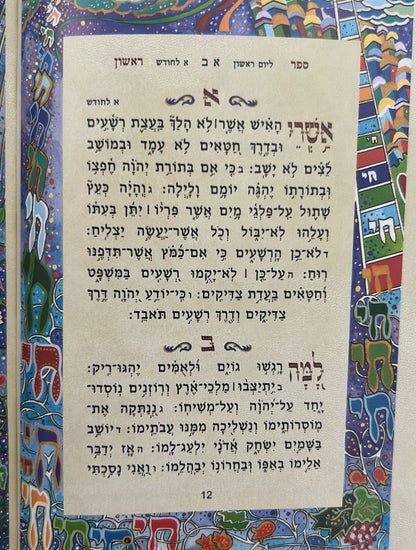 ספר ליום ראשון א ב א לחודש ראשון
א
א לחודש
אַ֥שְֽׁרֵי הָאִ֗ישׁ אֲשֶׁ֤ר ׀ לֹ֥א הָלַךְ֮ בַּעֲצַ֪ת רְשָׁ֫עִ֥ים
וּבְדֶ֣רֶךְ חַ֭טָּאִים לֹ֥א עָמָ֑ד וּבְמוֹשַׁ֥ב
לֵ֝צִ֗ים לֹ֣א יָשָֽׁב: ב כִּ֤י אִ֥ם בְּתוֹרַ֥ת יְהֹוָ֗ה חֶ֫פְצ֥וֹ
וּֽבְתוֹרָת֥וֹ יֶהְגֶּ֗ה יוֹמָ֥ם וָלָֽיְלָה: ג וְֽהָיָ֗ה כְּעֵץ֮
שָׁת֪וּל עַֽל־פַּלְגֵ֫י מָ֥יִם אֲשֶׁ֤ר פִּרְי֨וֹ ׀ יִתֵּ֬ן בְּעִתּ֗וֹ
וְעָלֵ֥הוּ לֹֽא־יִבּ֑וֹל וְכֹ֖ל אֲשֶׁר־יַעֲשֶׂ֣ה יַצְלִֽיחַ:
ד לֹא־כֵ֥ן הָרְשָׁעִ֑ים כִּ֥י אִם־כַּ֝מֹּ֗ץ אֲשֶׁר־תִּדְּפֶ֥נּוּ
רֽוּחַ: ה עַל־כֵּ֤ן ׀ לֹא־יָקֻ֣מוּ רְ֭שָׁעִים בַּמִּשְׁפָּ֑ט
וְ֝חַטָּאִ֗ים בַּעֲדַ֥ת צַדִּיקִֽים: ו כִּֽי־יוֹדֵ֣עַ יְ֭הֹוָה דֶּ֣רֶךְ
צַדִּיקִ֑ים וְדֶ֖רֶךְ רְשָׁעִ֣ים תֹּאבֵֽד:
ב
לָ֭מָּה רָגְשׁ֣וּ גוֹיִ֑ם וּ֝לְאֻמִּ֗ים יֶהְגּוּ־רִֽיק:
ב יִ֥תְיַצְּב֨וּ ׀ מַלְכֵי־אֶ֗רֶץ וְרוֹזְנִ֥ים נֽוֹסְדוּ־
יָ֑חַד עַל־יְ֝הֹוָ֗ה וְעַל־מְשִׁיחֽוֹ: ג נְֽ֭נַתְּקָה אֶת־
מוֹסְרוֹתֵ֑ימוֹ וְנַשְׁלִ֖יכָה מִמֶּ֣נּוּ עֲבֹתֵֽימוֹ: ד יוֹשֵׁ֣ב
בַּשָּׁמַ֣יִם יִשְׂחָ֑ק אֲ֝דֹנָ֗י יִלְעַג־לָֽמוֹ: ה אָ֤ז יְדַבֵּ֣ר
אֵלֵ֣ימוֹ בְאַפּ֑וֹ וּֽבַחֲרוֹנ֥וֹ יְבַהֲלֵֽמוֹ: ו וַ֭אֲנִי נָסַ֣כְתִּי
12